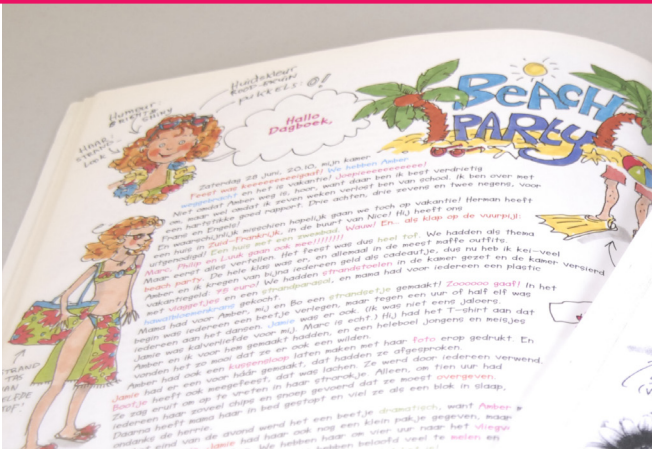 Humour:
Haar:
STRAND-
LOOK
Huidskleur
ROOD-BRUIN
PUKKELS: @!
Hallo
Dagboek,
BEACH
PARTY
Zaterdag 28 juni, 20.10, mijn kamer
Feest was keeeeeeeeeigaaf! We hebben Amber
weggebracht en het is vakantie! Joepieeeeeeeeeeee!
Niet omdat Amber weg is, hoor, want daar ben ik best verdrietig
om, maar wel omdat ik zeven weken verlost ben van school. Ik ben over met
een hartstikke goed rapport. Drie achten, drie zevens en twee negens, voor
Frans en Engels!
En waarschijnlijk misschien hopelijk gaan we toch op vakantie! Herman heeft
een huis in Zuid-Frankrijk, in de buurt van Nice! Hij heeft ons
uitgenodigd! Een huis met een zwembad. Wauw! En... als klap op de vuurpijl:
Marc, Philip en Luuk gaan ook mee!!!!!!!!
Maar eerst alles vertellen. Het feest was dus heel tof. We hadden als thema
beach party. De hele klas was er, en allemaal in de meest maffe outfits.
Amber en ik kregen van bijna iedereen geld als cadeautje, dus nu heb ik kei-veel
vakantiegeld: 75 euro! We hadden strandstoelen in de kamer gezet en de kamer versierd
met vlaggetjes en een strandparasol, en mama had voor iedereen een plastic
hawaïbloemenkrans gekocht.
Mama had voor Amber, mij en Bo een strandsetje gemaakt! Zoooooo gaaf! In het
begin was iedereen een beetje verlegen, maar tegen een uur of half elf was
iedereen aan het dansen. Jamie was er ook. (Ik was niet eens jaloers.
Jamie was kalverliefde voor mij. Marc is echt.) Hij had het T-shirt aan dat
Amber en ik voor hem gemaakt hadden, en een heleboel jongens en meisjes
vonden het zo mooi dat ze er ook een wilden.
Amber had ook een kussensloop laten maken met haar foto erop gedrukt. En
Jamie had er een voor háár gemaakt, dat hadden ze afgesproken.
Bootje heeft ook meegefeest, dat was lachen. Ze werd door iedereen verwend.
Ze zag eruit om op te vreten in haar strorokje. Alleen, om tien uur had
iedereen haar zoveel chips en snoep gevoerd dat ze moest overgeven.
Daarna heeft mama haar in bed gestopt en viel ze als een blok in slaap,
ondanks de herrie.
het eind van de avond werd het een beetje dramatisch, want Amber
Jamie had haar ook nog een klein pakje gegeven, maar
We hebben haar om vier uur naar het vliegv
hebben beloofd veel te melen en